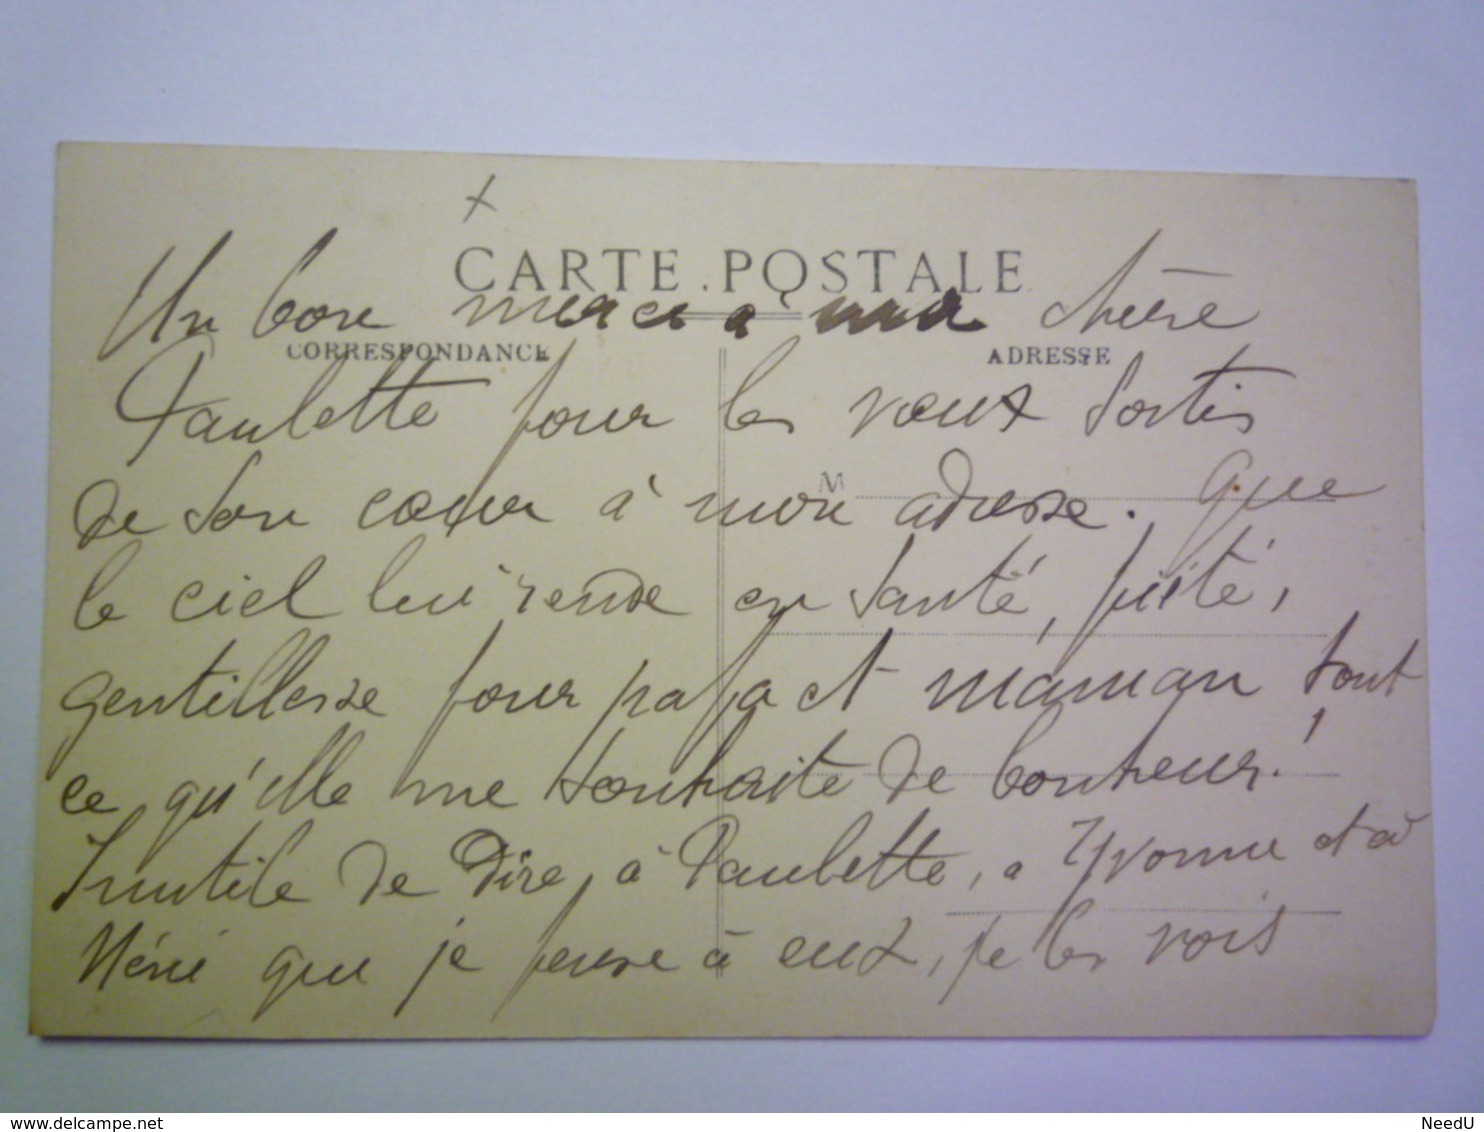 +
CARTE POSTALE
Un bon merci a ma chère
CORRESPONDANCE
ADRESSE
Paulette pour les vœux sortis
M
de son cœur à mon adresse. Que
le ciel lui rende en santé, piété,
gentillesse pour papa et maman tout
ce qu'elle me souhaite de bonheur!
Inutile de dire, à Paulette, a Yvonne et à
Néné que je pense à eux, je les vois
www.delcampe.net
NeedU